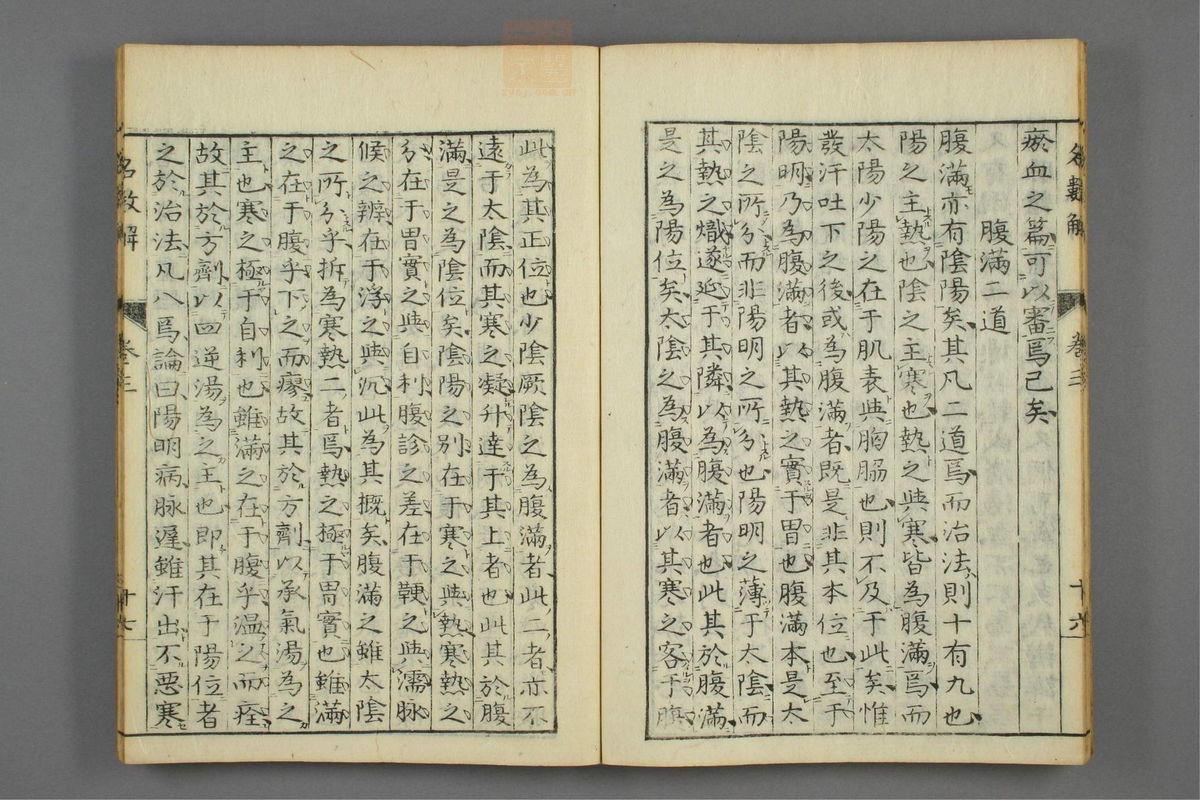 瘀血之篇可以審焉已矣
腹滿二道
腹滿亦有陰陽矣其凡二道焉而治法則十有九也
陽之主熱也陰之主寒也熱之與寒皆為腹滿焉而
太陽少陽之在于肌表與胸脇也則不及于此矣惟
發汗吐下之後或為腹滿者既是非其本位也至于
陽明乃為腹滿者以其熱之實于胃也腹滿本是太
陰之所分而非陽明之所分也陽明之薄于太陰而
其熱之熾遂延于其隣以為腹滿者也此其於腹滿
是之為陽位矣太陰之為腹滿者以其寒之客于腹
卷三
十六
此為其正位也少陰厥陰之為腹滿者此二者亦不
遠于太陰而其寒之凝升達于其上者也此其於腹
滿是之為陰位矣陰陽之別在于寒之與熱寒熱之
分在于胃實之與自利腹診之差在于鞕之與濡脉
候之辨在于浮之與沉此為其概矣腹滿之雖太陰
之所分乎拆為寒熱二者焉熱之極于胃實也雖滿
之在于腹乎下之而瘳故其於方劑以承氣湯為之
主也寒之極于自利也雖滿之在于腹乎温之而痊
故其於方劑以四逆湯為之主也即其在于陽位者
之於治法凡八焉論曰陽明病脉遲雖汗出不惡寒
名數解
卷三
十七